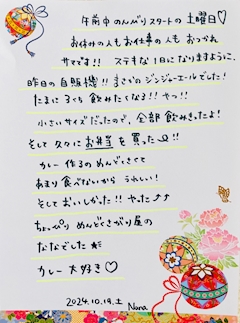 午前中のんびりスタートの土曜日♡
お休みの人もお仕事の人もおつかれ
サマです!! ステキな1日になりますように。
昨日の自販機!! まさかのジンジャーエールでした!
たまに ろくち 飲みたくなる!! やっ!!
小さいサイズだったので、全部飲みきったよ!
そして 久々に お弁当を買った!!
カレー 作るの めんどくさくて
あまり食べないから うれしい!
そしておいしかった!! やったァァ
ちょっぴり めんどくさがり屋の
ななでした★彡
カレー 大好き♡
2024.10.19.土 Nana